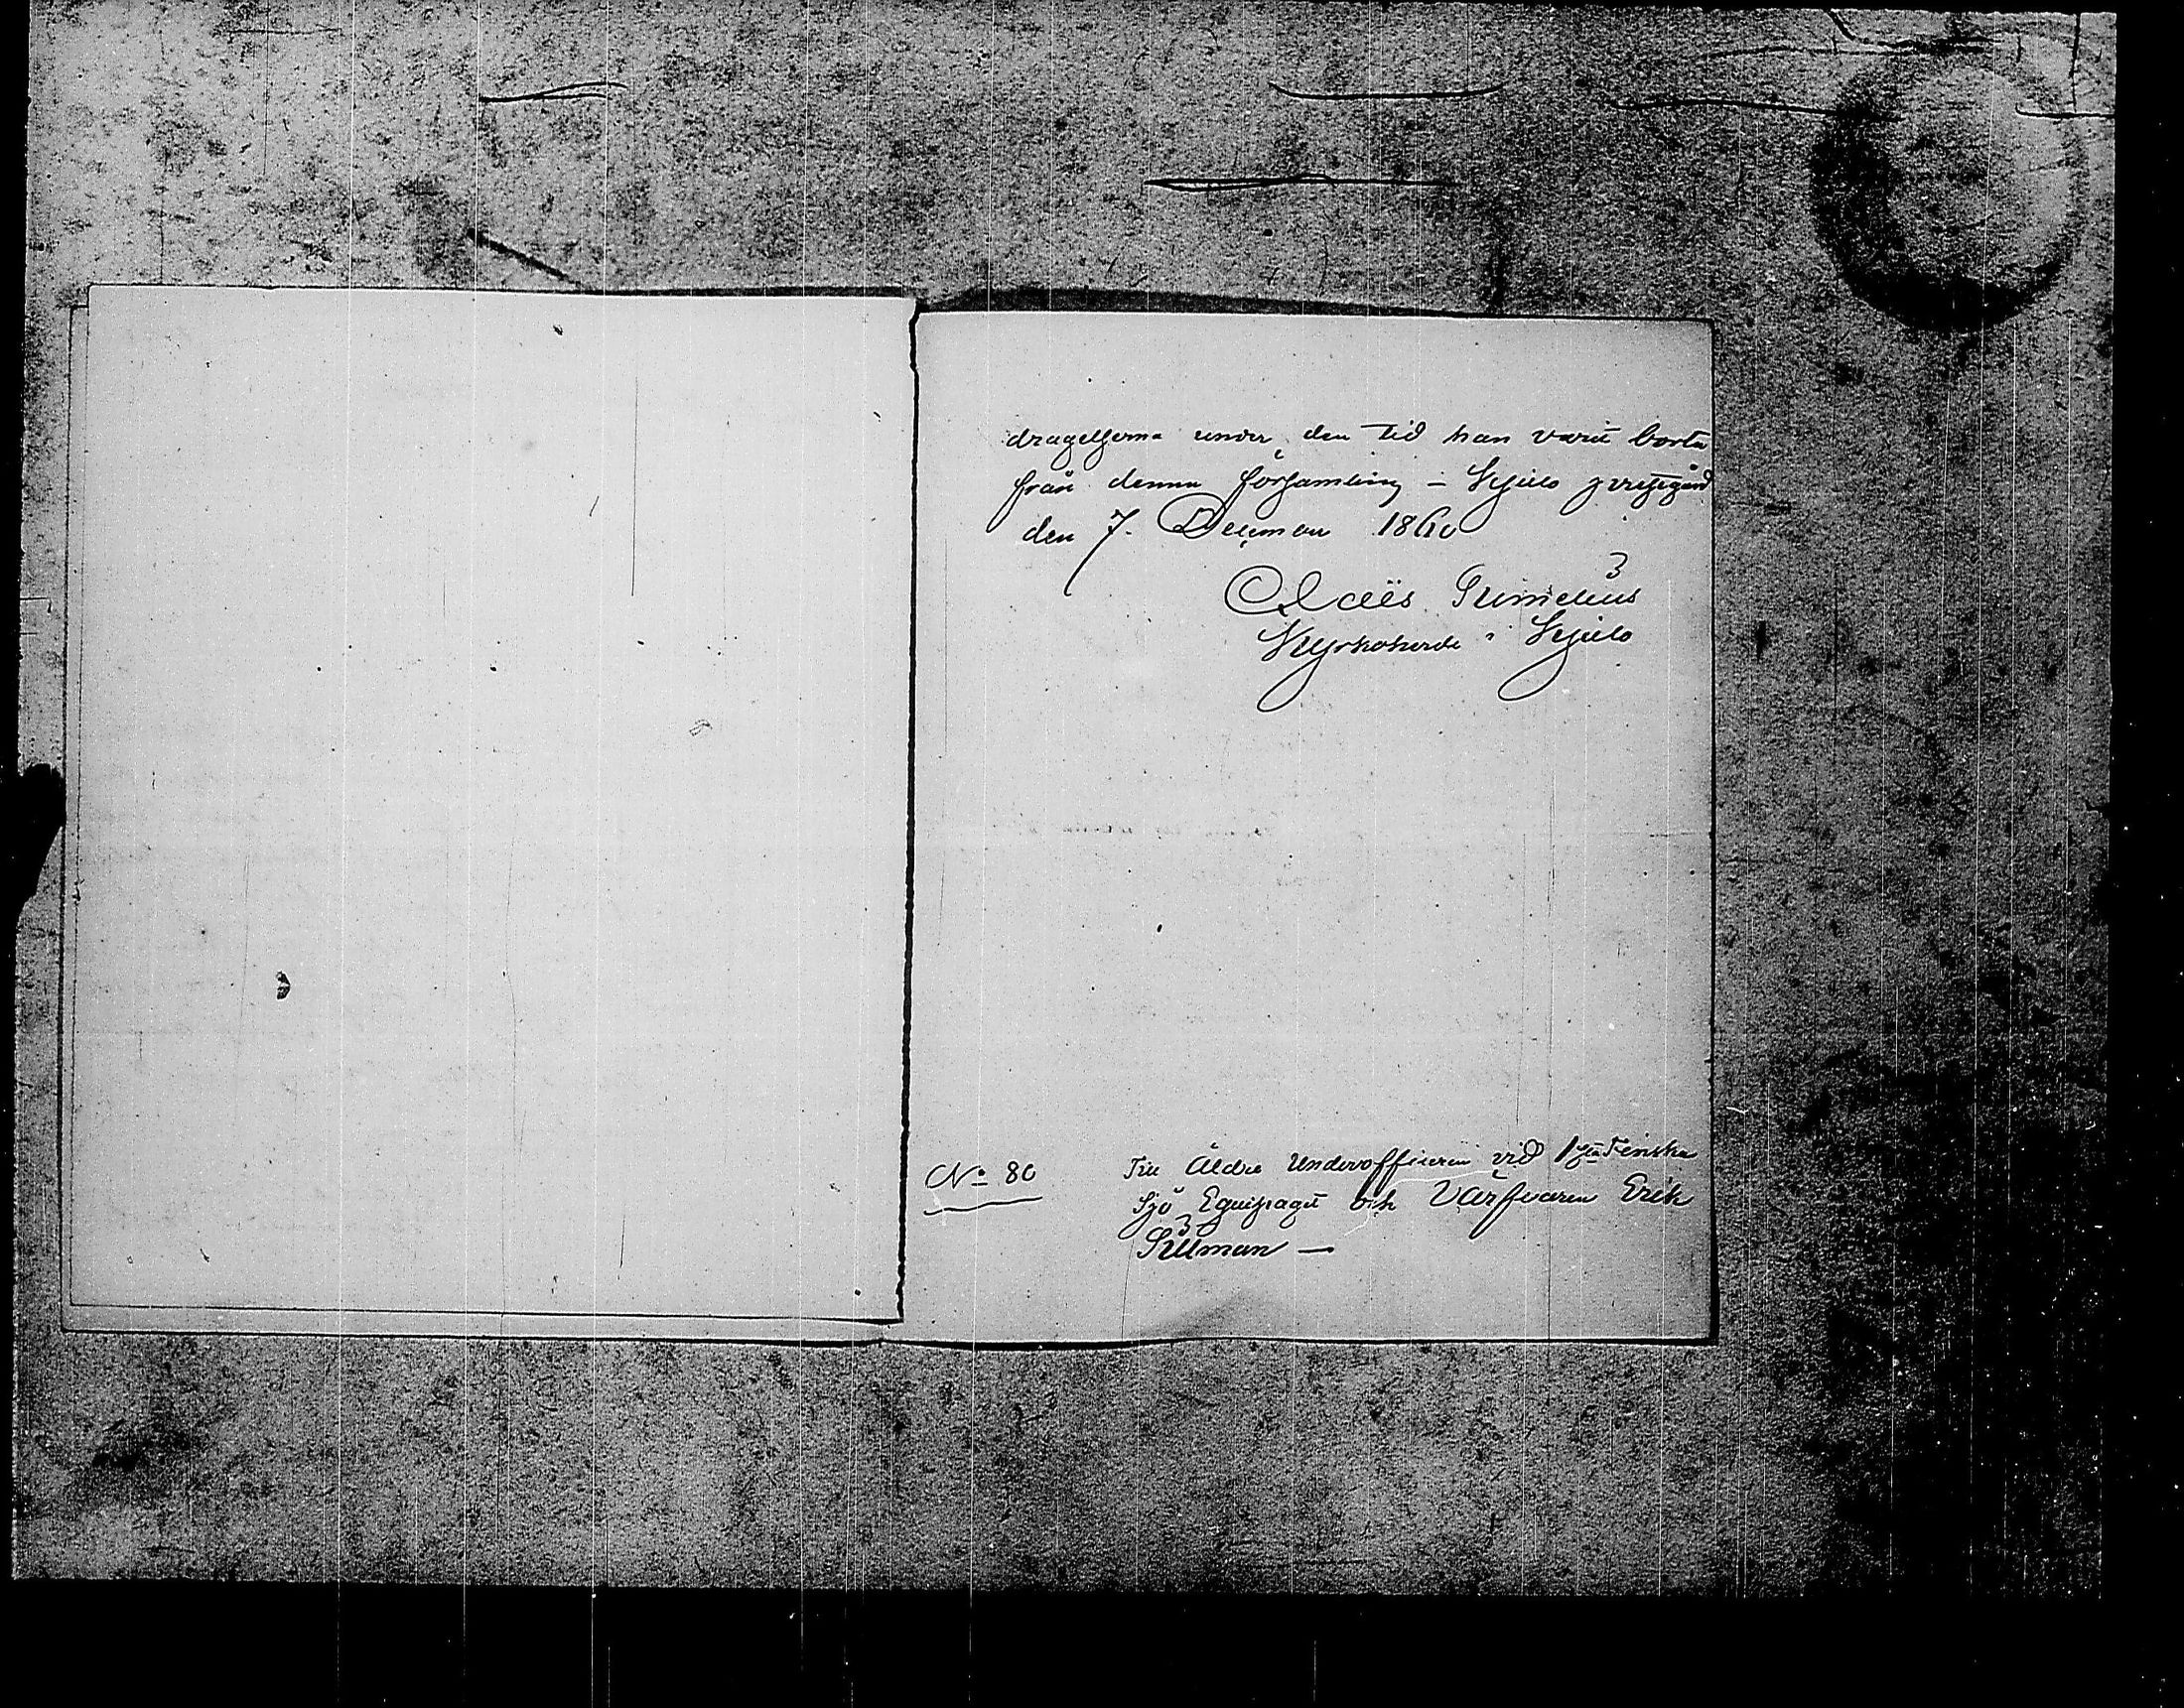 dragelserna under den tid han varit borta
från denna församling – Kjulo prestgård
den 7. December 1860
Kyrkoherde i Kjulo
No 80
Till Äldre Underofficeren vid 1sta Finska
Sjö Equipaget och Värfvaren Erik
Sillman —